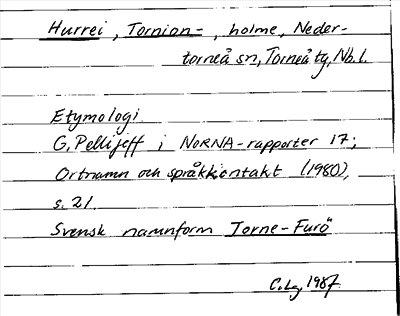 Hurrei, Tornion-, holme, Neder-
torneå sn, Torneå tg, Nb.l.
Etymologi
G. Pellijeff i NORNA-rapporter 17;
Ortnamn och språkkontakt (1980),
s. 21.
Svensk namnform Torne-Furö
C.Lg 1987.